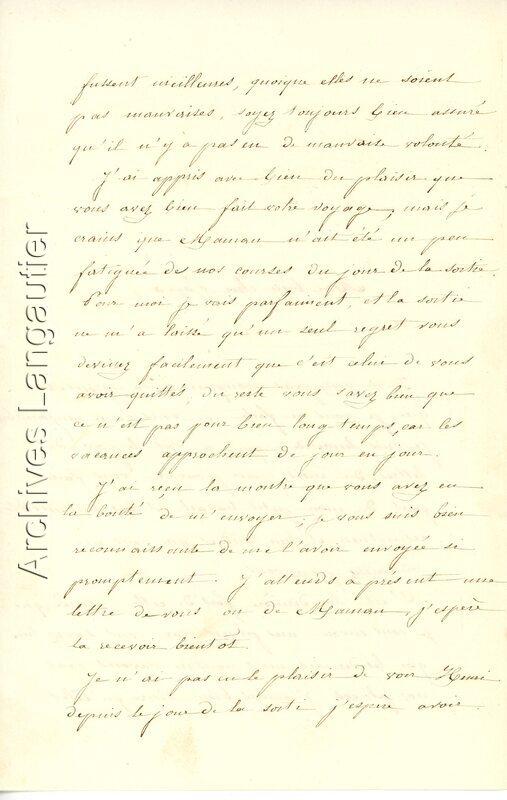 fussent meilleures, quoique elles ne soient
pas mauvaises, soyez toujours bien assuré
qu'il n'y a pas eu de mauvaise volonté.
J'ai appris avec bien du plaisir que
vous avez bien fait votre voyage, mais je
crains que Maman n'ait été un peu
fatiguée des nos courses du jour de la sortie.
Pour moi je vais parfaiment, et la sortie
ne m'a laissé qu'un seul regret vous
devinez facilement que c'est celui de vous
avoir quittés, du reste vous savez bien que
ce n'est pas pour bien long temps, car les
vacances approchent de jour en jour.
J'ai reçu la montre que vous avez eu
la bonté de m'envoyer, je vous suis bien
reconnaissante de me l'avoir envoyée si
promptement. J'attends à présent une
lettre de vous ou de Maman, j'espère
la recevoir bientôt.
Je n'ai pas eu le plaisir de voir Henri
depuis le jour de la sorti j'espère avoir
Archives Langautier